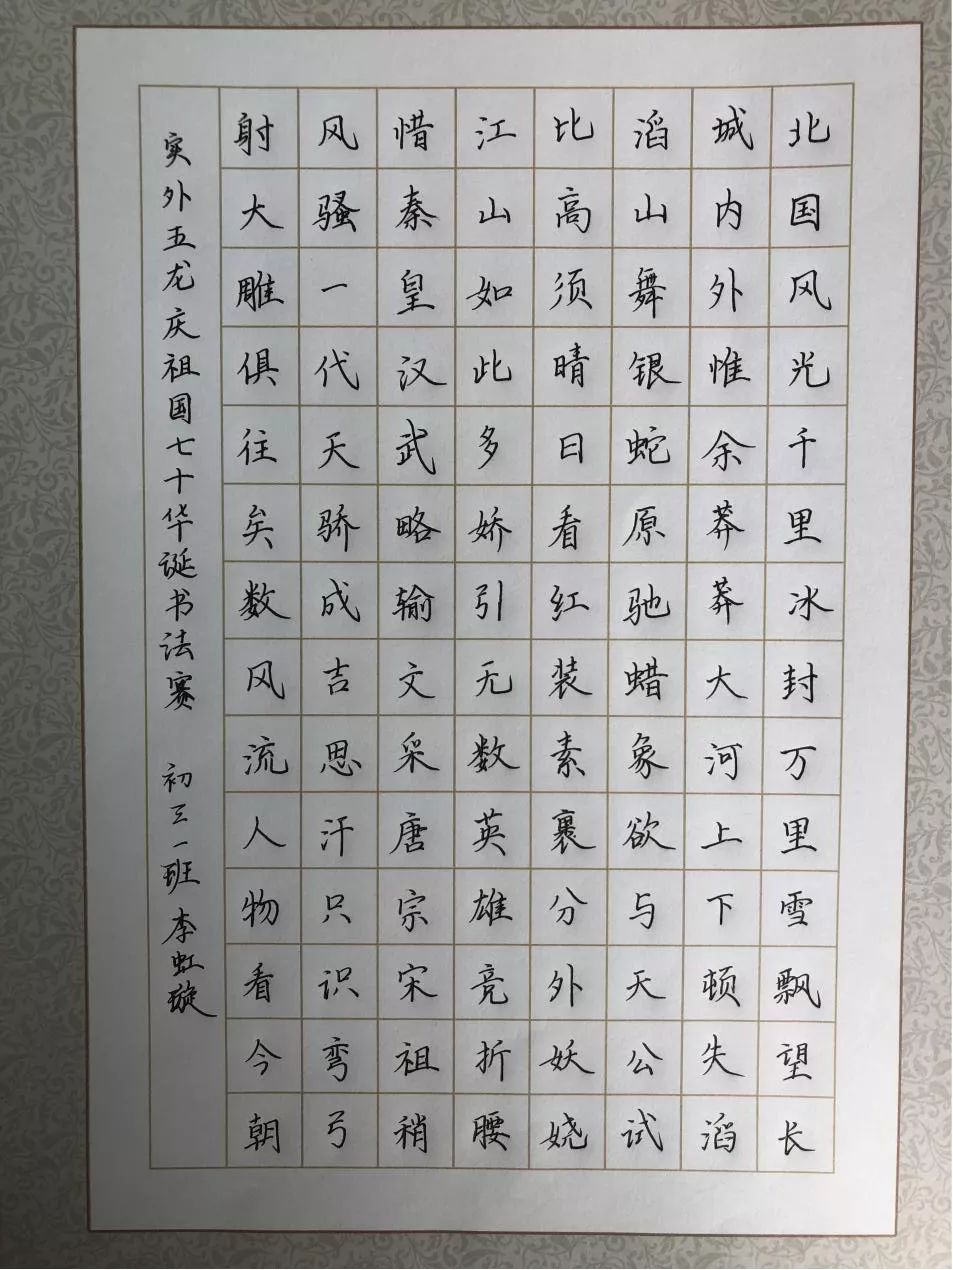 北国风光千里冰封万里雪飘望长
城内外惟余莽莽大河上下顿失滔
滔山舞银蛇原驰蜡象欲与天公试
比高须晴日看红装素裹分外妖娆
江山如此多娇引无数英雄竞折腰
惜秦皇汉武略输文采唐宗宋祖稍
风骚一代天骄成吉思汗只识弯弓
射大雕俱往矣数风流人物看今朝
实外五龙庆祖国七十华诞书法赛 初三一班 李虹璇